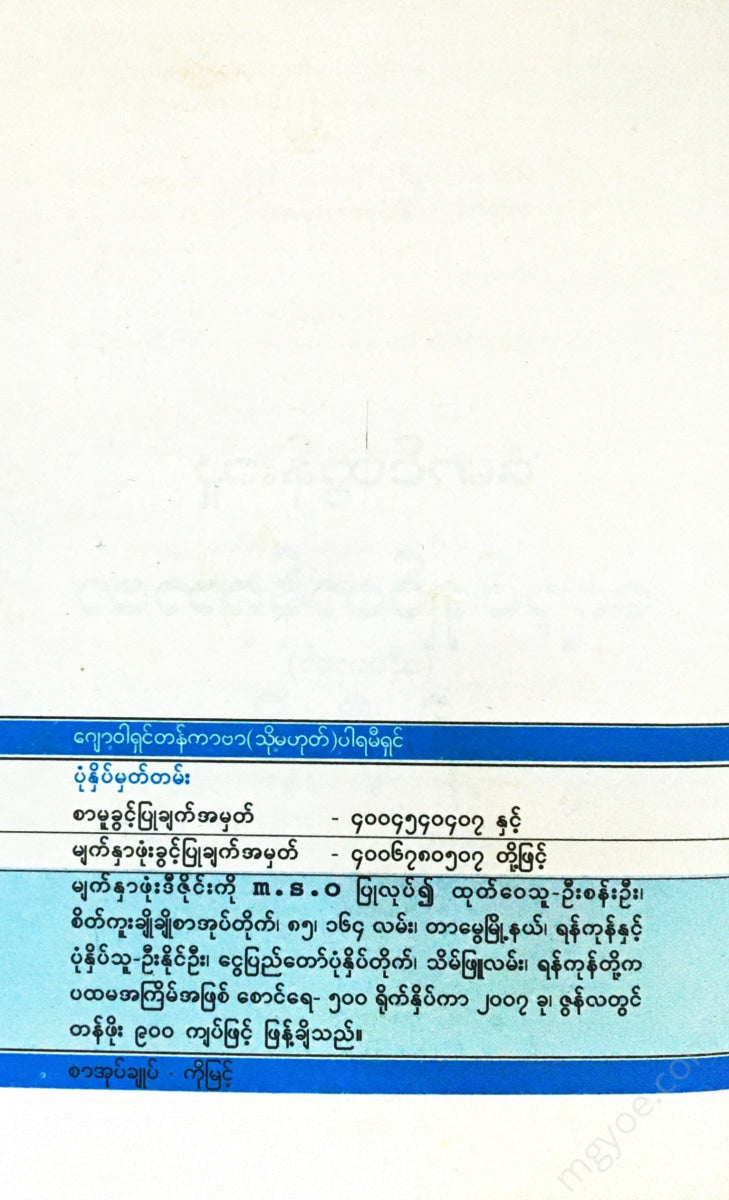 ဂျော့ဝါရှင်တန်ကာဗာ(သို့မဟုတ်)ပါရမီရှင်
ပုံနှိပ်မှတ်တမ်း
စာမူခွင့်ပြုချက်အမှတ် - ၄၀၀၄၅၄၀၄၀၇ နှင့်
မျက်နှာဖုံးခွင့်ပြုချက်အမှတ် - ၄၀၀၆၇၈၀၅၀၇ တို့ဖြင့်
မျက်နှာဖုံးဒီဇိုင်းကို m.s.o ပြုလုပ်၍ ထုတ်ဝေသူ-ဦးစန်းဦး၊
စိတ်ကူးချိုချိုစာအုပ်တိုက်၊ ၈၅၊ ၁၆၄ လမ်း၊ တာမွေမြို့နယ်၊ ရန်ကုန်နှင့်
ပုံနှိပ်သူ-ဦးနိုင်ဦး၊ ငွေပြည်တော်ပုံနှိပ်တိုက်၊ သိမ်ဖြူလမ်း၊ ရန်ကုန်တို့က
ပထမအကြိမ်အဖြစ် စောင်ရေ- ၅၀၀ ရိုက်နှိပ်ကာ ၂၀၀၇ ခု၊ ဇွန်လတွင်
တန်ဖိုး ၉၀၀ ကျပ်ဖြင့် ဖြန့်ချိသည်။
စာအုပ်ချုပ် - ကိုမြင့်
mgyoe.com